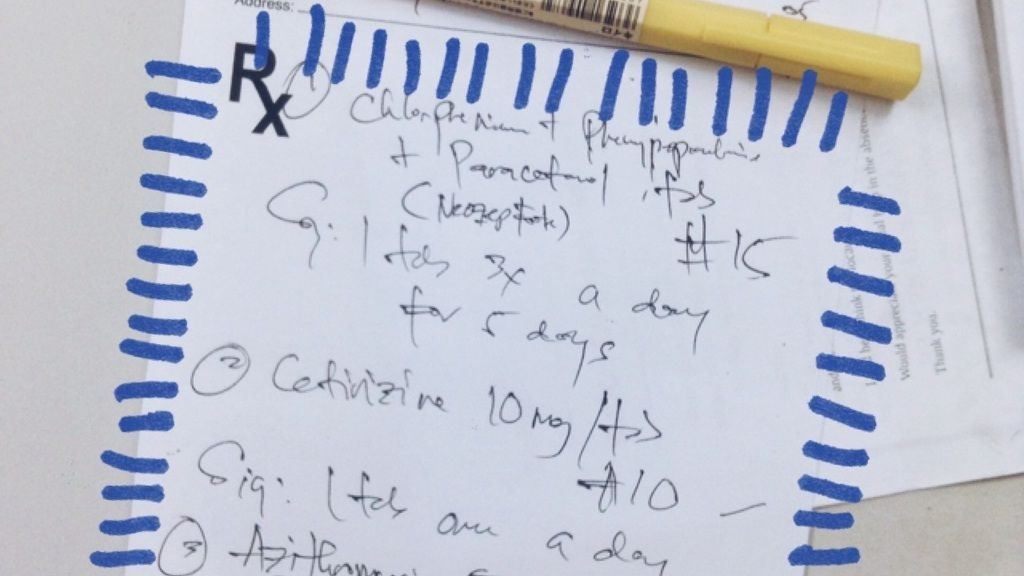 Address:
Rx
① Chlorphenium + Phenylpropanolamine
+ Paracetamol tabs
(Neozep forte)
#15
Sig: 1 tab 3x a day
for 5 days
② Cetirizine 10 mg/tab
#10
Sig: 1 tab once a day
③
Would appreciate your
in the absence
Thank you.